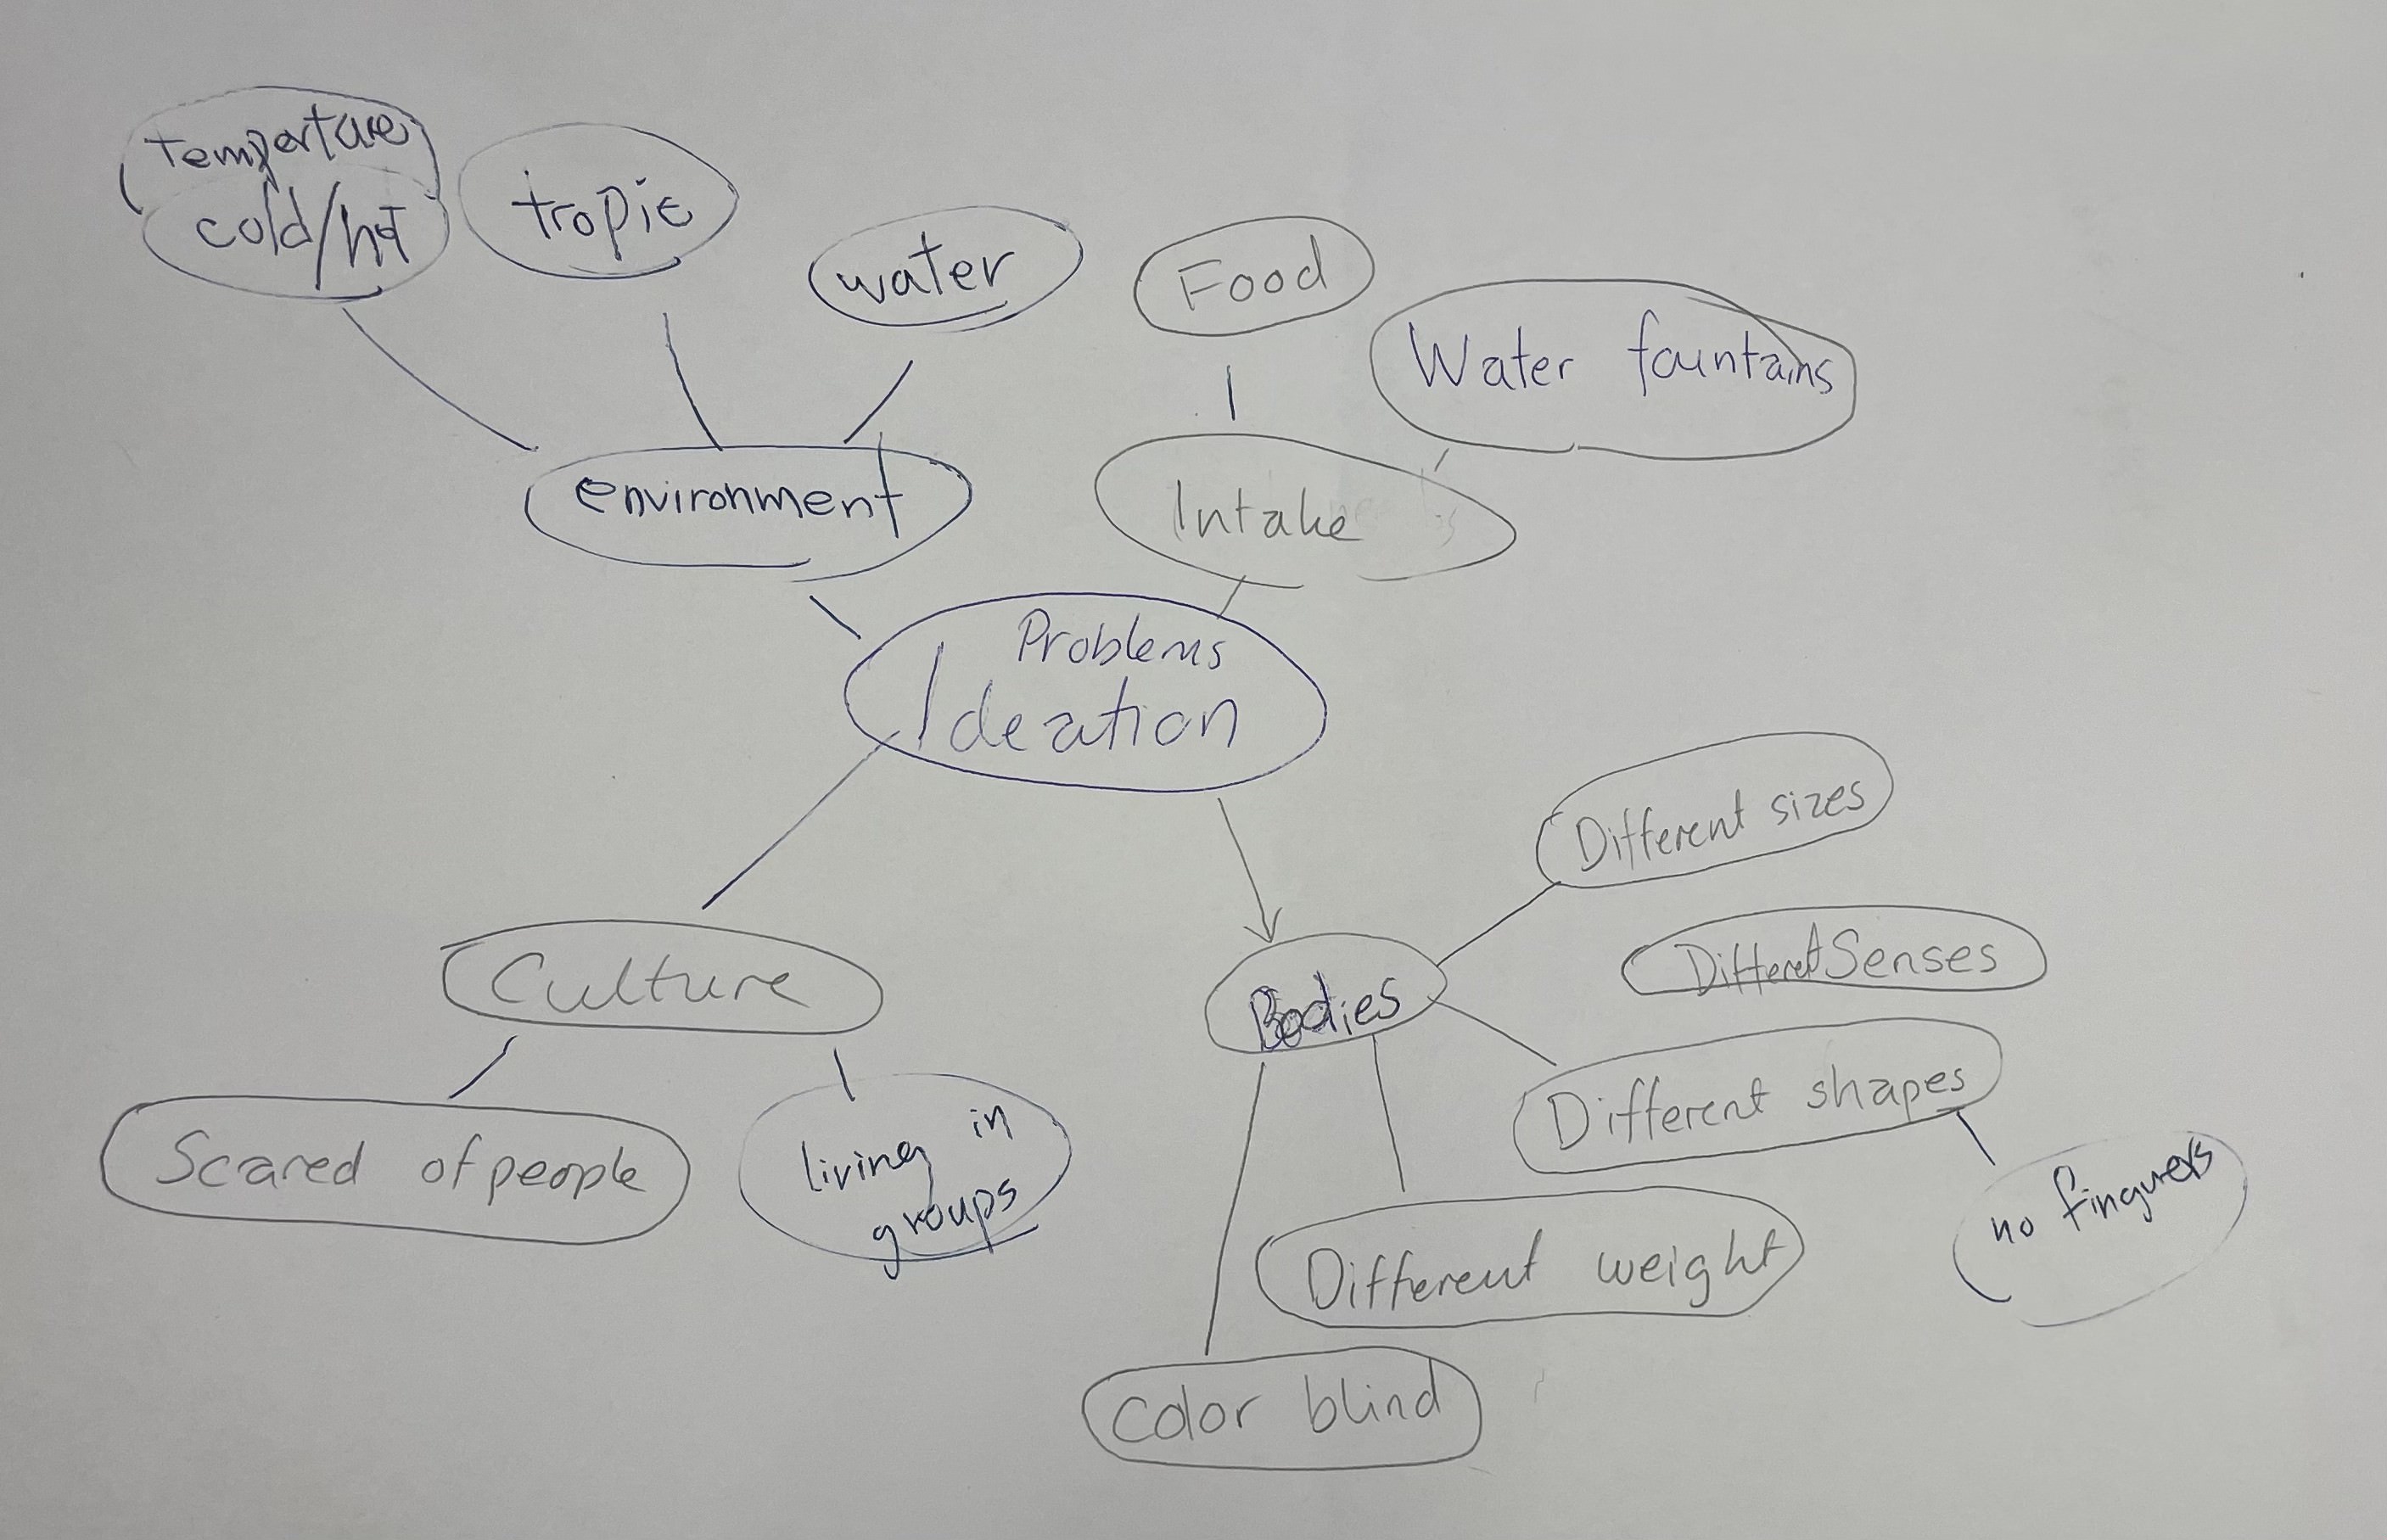 Temperture
cold/hot
tropic
water
Food
Water fountains
environment
Intake
Problems
Ideation
Different sizes
Different Senses
Culture
Bodies
Different shapes
Scared of people
living in
groups
no finguers
Different weight
Color blind